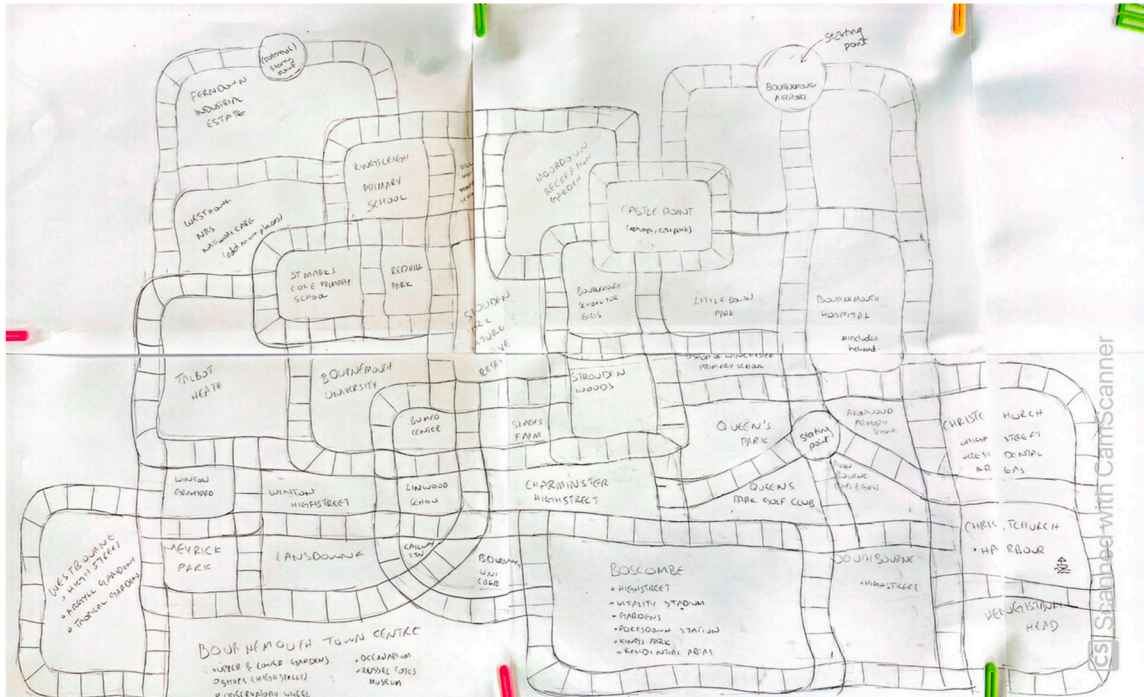 (potential)
starting
point
FERNDOWN
INDUSTRIAL
ESTATE
Starting
point
BOURNEMOUTH
AIRPORT
KINGSLEIGH
PRIMARY
SCHOOL
MOORDOWN
RECREATION
GARDEN
CASTLE POINT
WESTBOURNE
NHS
ST MARKS
COFE PRIMARY
SCHOOL
REDHILL
PARK
BOURNEMOUTH
SCHOOL FOR
GIRLS
LITTLEDOWN
PARK
BOURNEMOUTH
HOSPITAL
*includes
helipad
NATURE
RESERVE
TALBOT
HEATH
BOURNEMOUTH
UNIVERSITY
STROUDEN
WOODS
BISHOP OF WINCHESTER
PRIMARY SCHOOL
SLADES
FARM
QUEEN'S
PARK
Starting
point
AVONWOOD
PRIMARY
SCHOOL
CHRISTCHURCH
HIGH STREET
RESIDENTIAL
AREAS
WINTON
WINTON
HIGHSTREET
LINWOOD
SCHOOL
CHARMINSTER
HIGHSTREET
QUEENS
PARK GOLF CLUB
WESTBOURNE
• HIGH STREET
• ARGYLL GARDENS
• TROPICAL GARDENS
MEYRICK
PARK
LANSDOWNE
RAILWAY
STN
BOSCOMBE
• HIGHSTREET
• VITALITY STADIUM
• GARDENS
• POKESDOWN STATION
• KINGS PARK
• RESIDENTIAL AREAS
SOUTHBOURNE
• HIGHSTREET
CHRISTCHURCH
• HARBOUR
HENGISTBURY
HEAD
BOURNEMOUTH TOWN CENTRE
• UPPER & LOWER GARDENS
• SHOPS (HIGHSTREET)
• OBSERVATORY WHEEL
• OCEANARIUM
• RUSSEL COTES
MUSEUM
CS Scanned with CamScanner